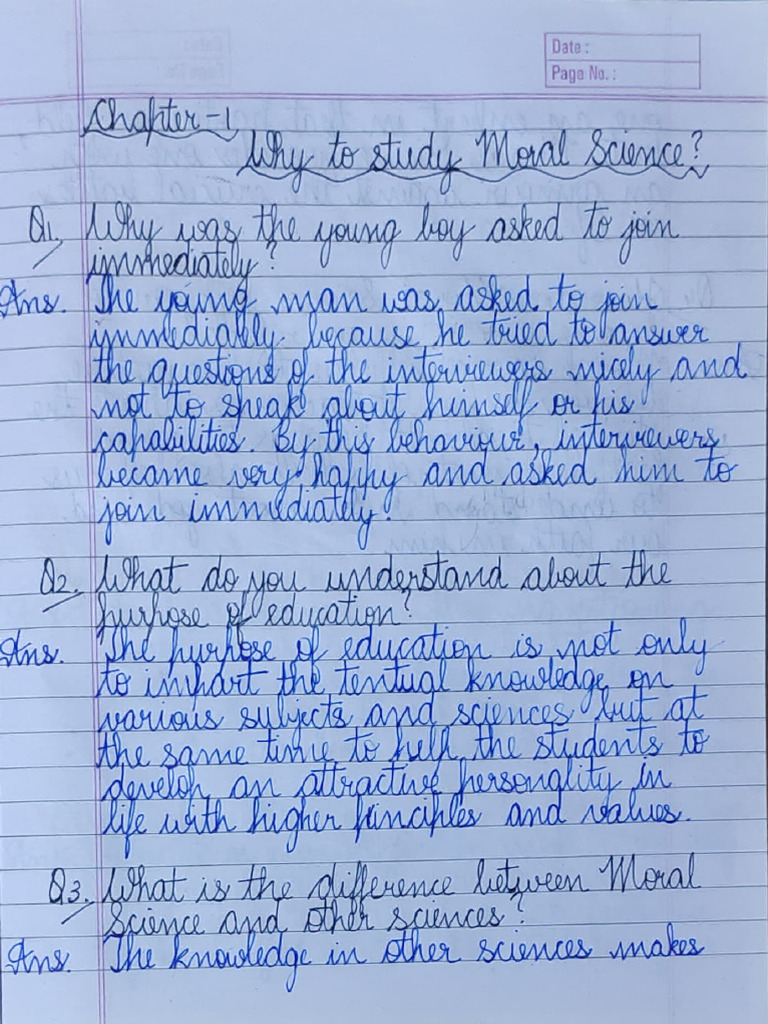 Date :
Page No. :
Chapter-1
Why to study Moral Science?
Q1. Why was the young boy asked to join
immediately?
Ans. The young man was asked to join
immediately because he tried to answer
the questions of the interviewers nicely and
not to speak about himself or his
capabilities. By this behaviour, interviewers
became very happy and asked him to
join immediately.
Q2. What do you understand about the
purpose of education?
Ans. The purpose of education is not only
to impart the tentual knowledge on
various subjects and sciences but at
the same time to help the students to
develop an attractive personality in
life with higher principles and values.
Q3. What is the difference between Moral
Science and other sciences?
Ans. The knowledge in other sciences makes